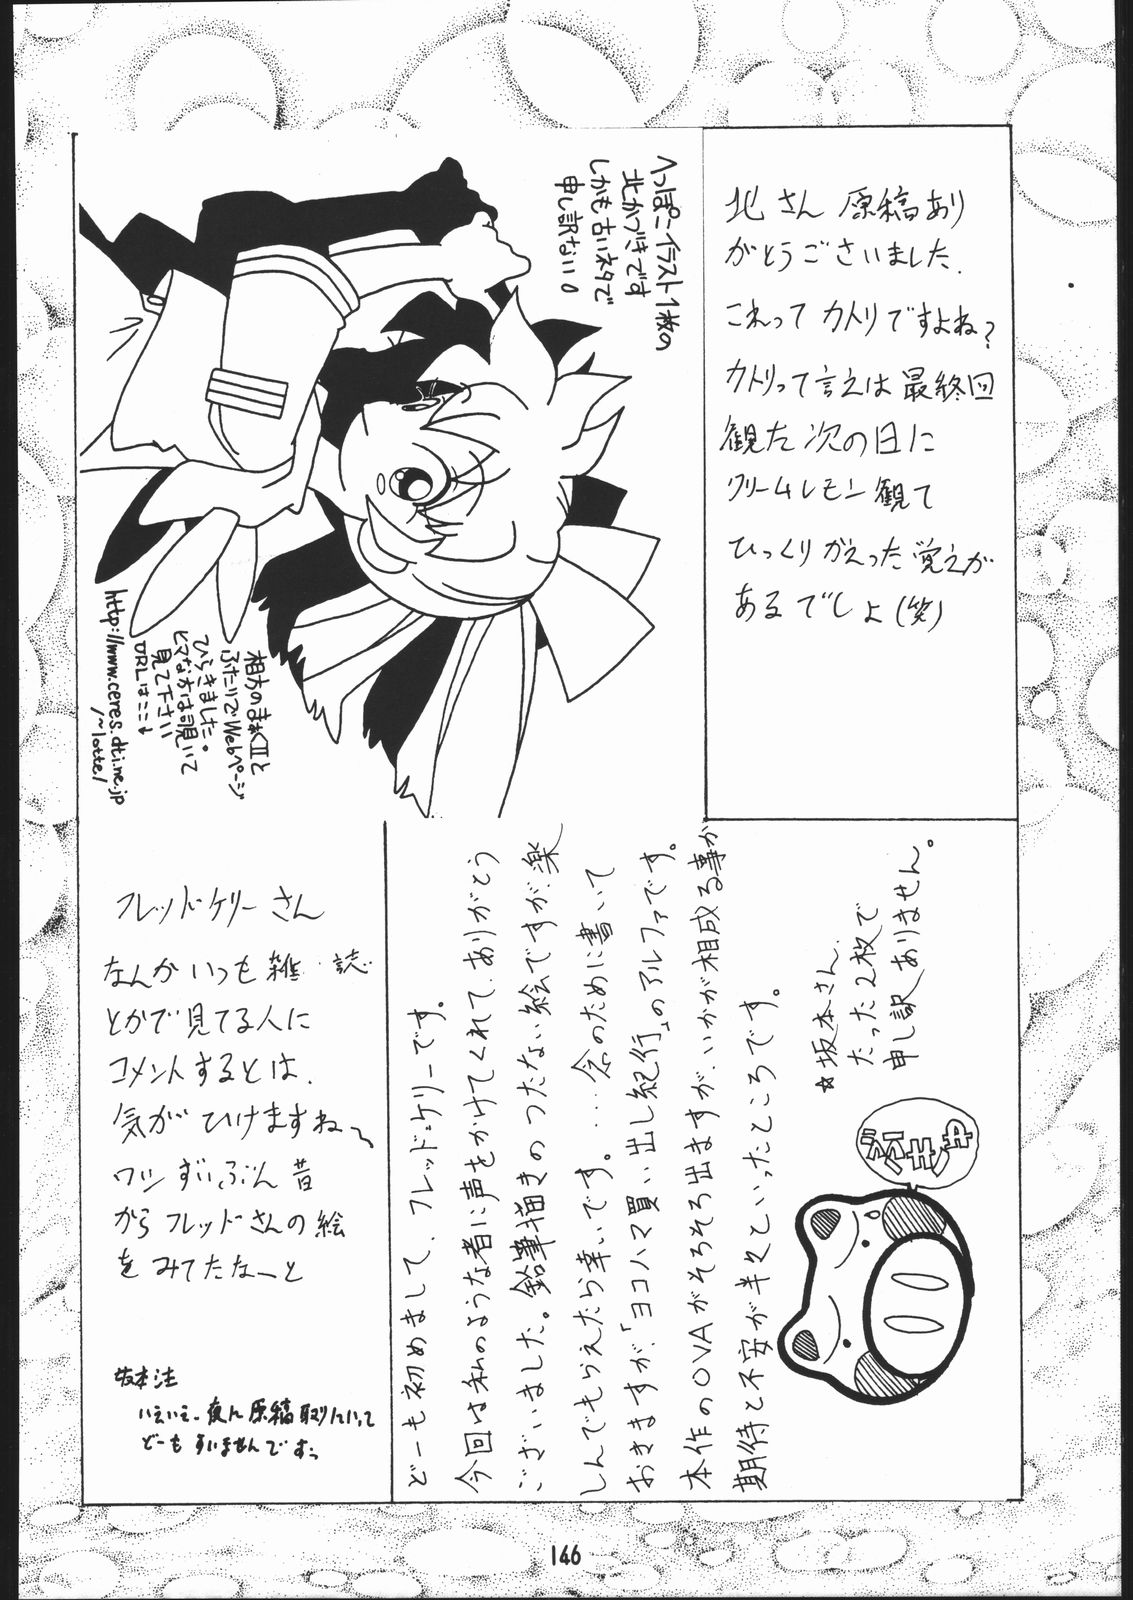 へっぽこイラスト1枚の
北かづきです
しかも古いネタで
申し訳ない0
相方のまぁくIIと
ふたりでWebページ
ひらきました。
ヒマな方は覗いて
見て下さい
URLはここ↓
http://www.ceres.dti.ne.jp
/~lotte/
北さん 原稿あり
がとうございました.
これって カトリですよね?
カトリって言えは 最終回
観た 次の日に
クリームレモン 観て
ひっくりがえった 覚えが
あるでしょ(笑)
フレッド・ケリーさん
なんか いつも 雑誌
とかで見てる人に
コメントするとは、
気が ひけますね〜
ワシ ずいぶん 昔
から フレッドさんの絵
を みてたなーと
坂本注
いえいえ、夜に原稿取りにいって
どーも すいませんですっ
どーも初めまして、フレッド=ケリーです。
今回は私のような者に声をかけてくれて、ありがとう
ございました。鉛筆描きのつたない絵ですが、楽
しんでもらえたら幸いです。・・・念のために書いて
おきますが、「ヨコハマ買い出し紀行」のアルファです。
本作のOVAがそろそろ出ますが、いかが相成る事か
期待と不安が半々といったところです。
☆坂本さん、
たった2枚で
申し訳ありません。
146